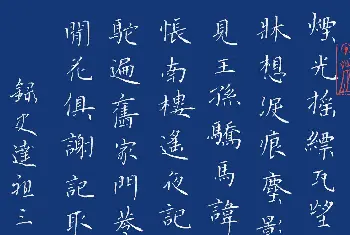 煙光搖縹瓦望
牀想淚痕塵影
見王孫驕馬諱
悵南樓遙夜記
駝遍舊家門巷
閒花俱謝記取
錄史達祖三